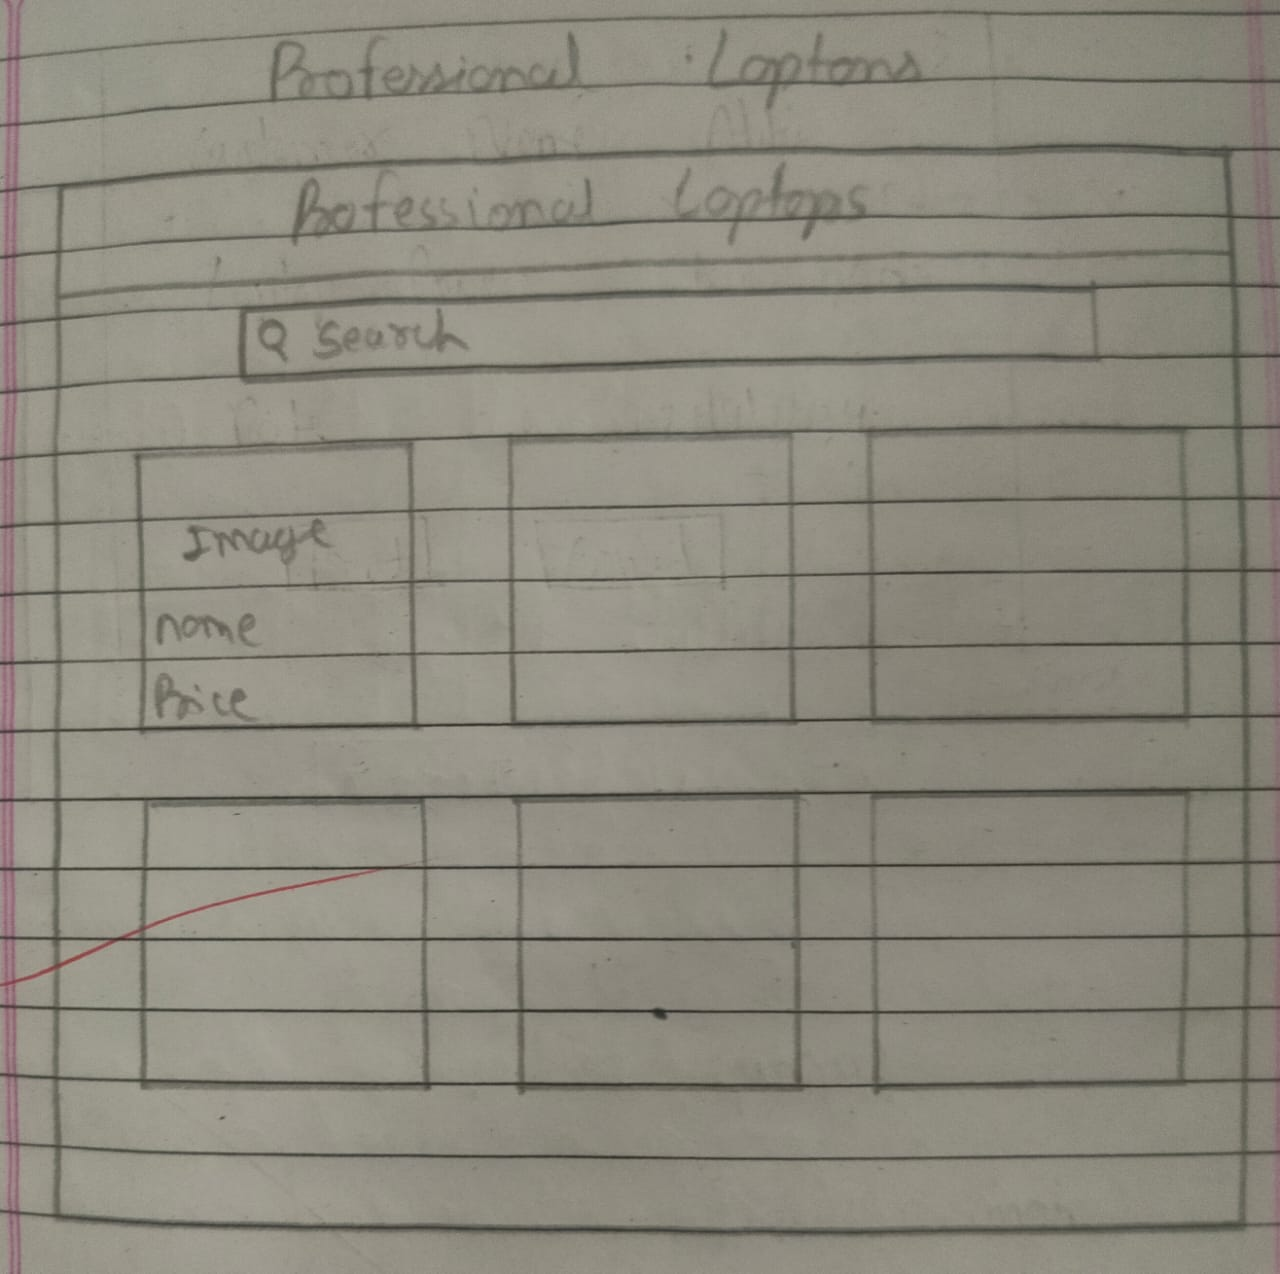 Professional Laptops
Professional Laptops
Search
Image
name
Price